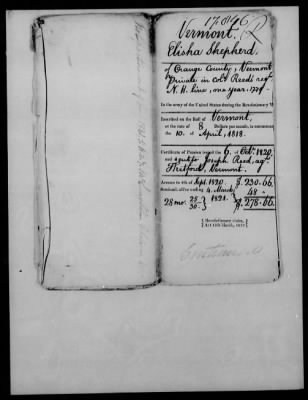 17.846
Vermont.
Elisha Shepherd.
of Orange County, Vermont
Private in col. Reeds regt
N.H. line, one year. 1776
In the army of the United States during the Revolutionary
Inscribed on the Roll of Vermont,
at the rate of 8 Dollars per month, to commence
the 10. of April, 1818.
Certificate of Pension issued the 6. of Octr. 1820
and sent to Joseph Reed, agt.
Thetford, Vermont.
Arrears to 4th of Sept. 1820. $. 230.66
Semi-anl. all'ce ending 4. March 1821. 48
28 mo. 25/30 } $. 278.66
Revolutionary claim,
Act 18th March, 1818.